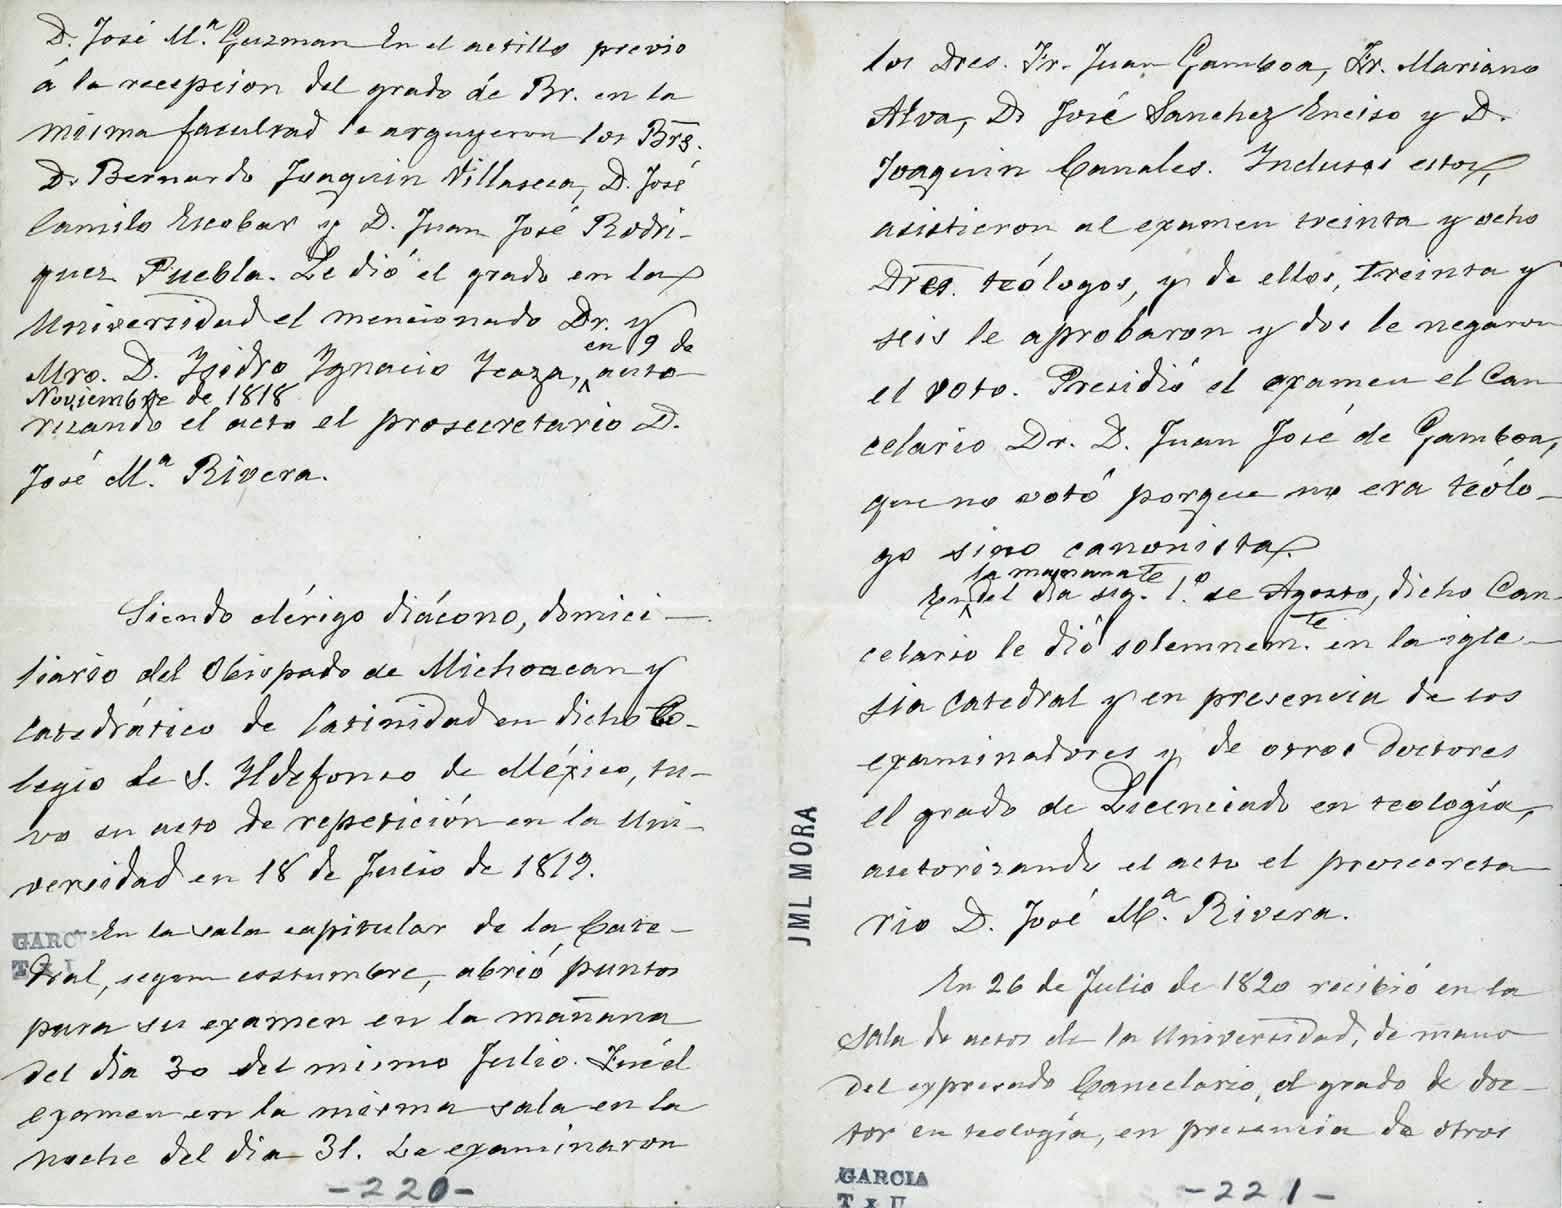 D. José M.ª Guzman En el actillo previo
á la recepcion del grado de Br. en la
misma facultad le arguyeron los Brs.
D. Bernardo Joaquin Villaseca, D. José
Camilo Escobar y D. Juan José Rodri-
guez Puebla. Le dió el grado en la
Universidad el mencionado Dr. y
en 9 de
Mro. D. Isidro Ignacio Icaza, auto
Noviembre de 1818
rizando el acto el prosecretario D.
José M.ª Rivera.
Siendo clérigo diácono, domici-
liario del Obispado de Michoacan y
catedrático de latinidad en dicho Co-
legio de S. Ildefonso de México, tu-
vo su acto de repetición en la Uni-
versidad en 18 de Julio de 1819.
En la sala capitular de la Cate-
dral, segun costumbre, abrió puntos
para su examen en la mañana
del dia 30 del mismo Julio. Fué el
examen en la misma sala en la
noche del dia 31. Le examinaron
-220-
GARCIA
T x I
JML MORA
los Dres. Fr. Juan Gamboa, Fr. Mariano
Alva, D. José Sanchez Enciso y D.
Joaquin Canales. Inclusos estos,
asistieron al examen treinta y ocho
Dres. teólogos, y de ellos, treinta y
seis le aprobaron y dos le negaron
el voto. Presidió el examen el Can
celario Dr. D. Juan José de Gamboa,
que no votó porque no era teólo-
go sino canonista.
la mañana
En del dia sig.te 1.º de Agosto, dicho Can-
celario le dió solemnem.te en la igle-
sia catedral y en presencia de los
examinadores y de otros doctores
el grado de Licenciado en teología,
autorizando el acto el prosecreta
rio D. José M.ª Rivera.
En 26 de Julio de 1820 recibió en la
sala de actos de la Universidad, de mano
del expresado Cancelario, el grado de doc-
tor en teología, en presencia de otros
GARCIA
T x II
-221-